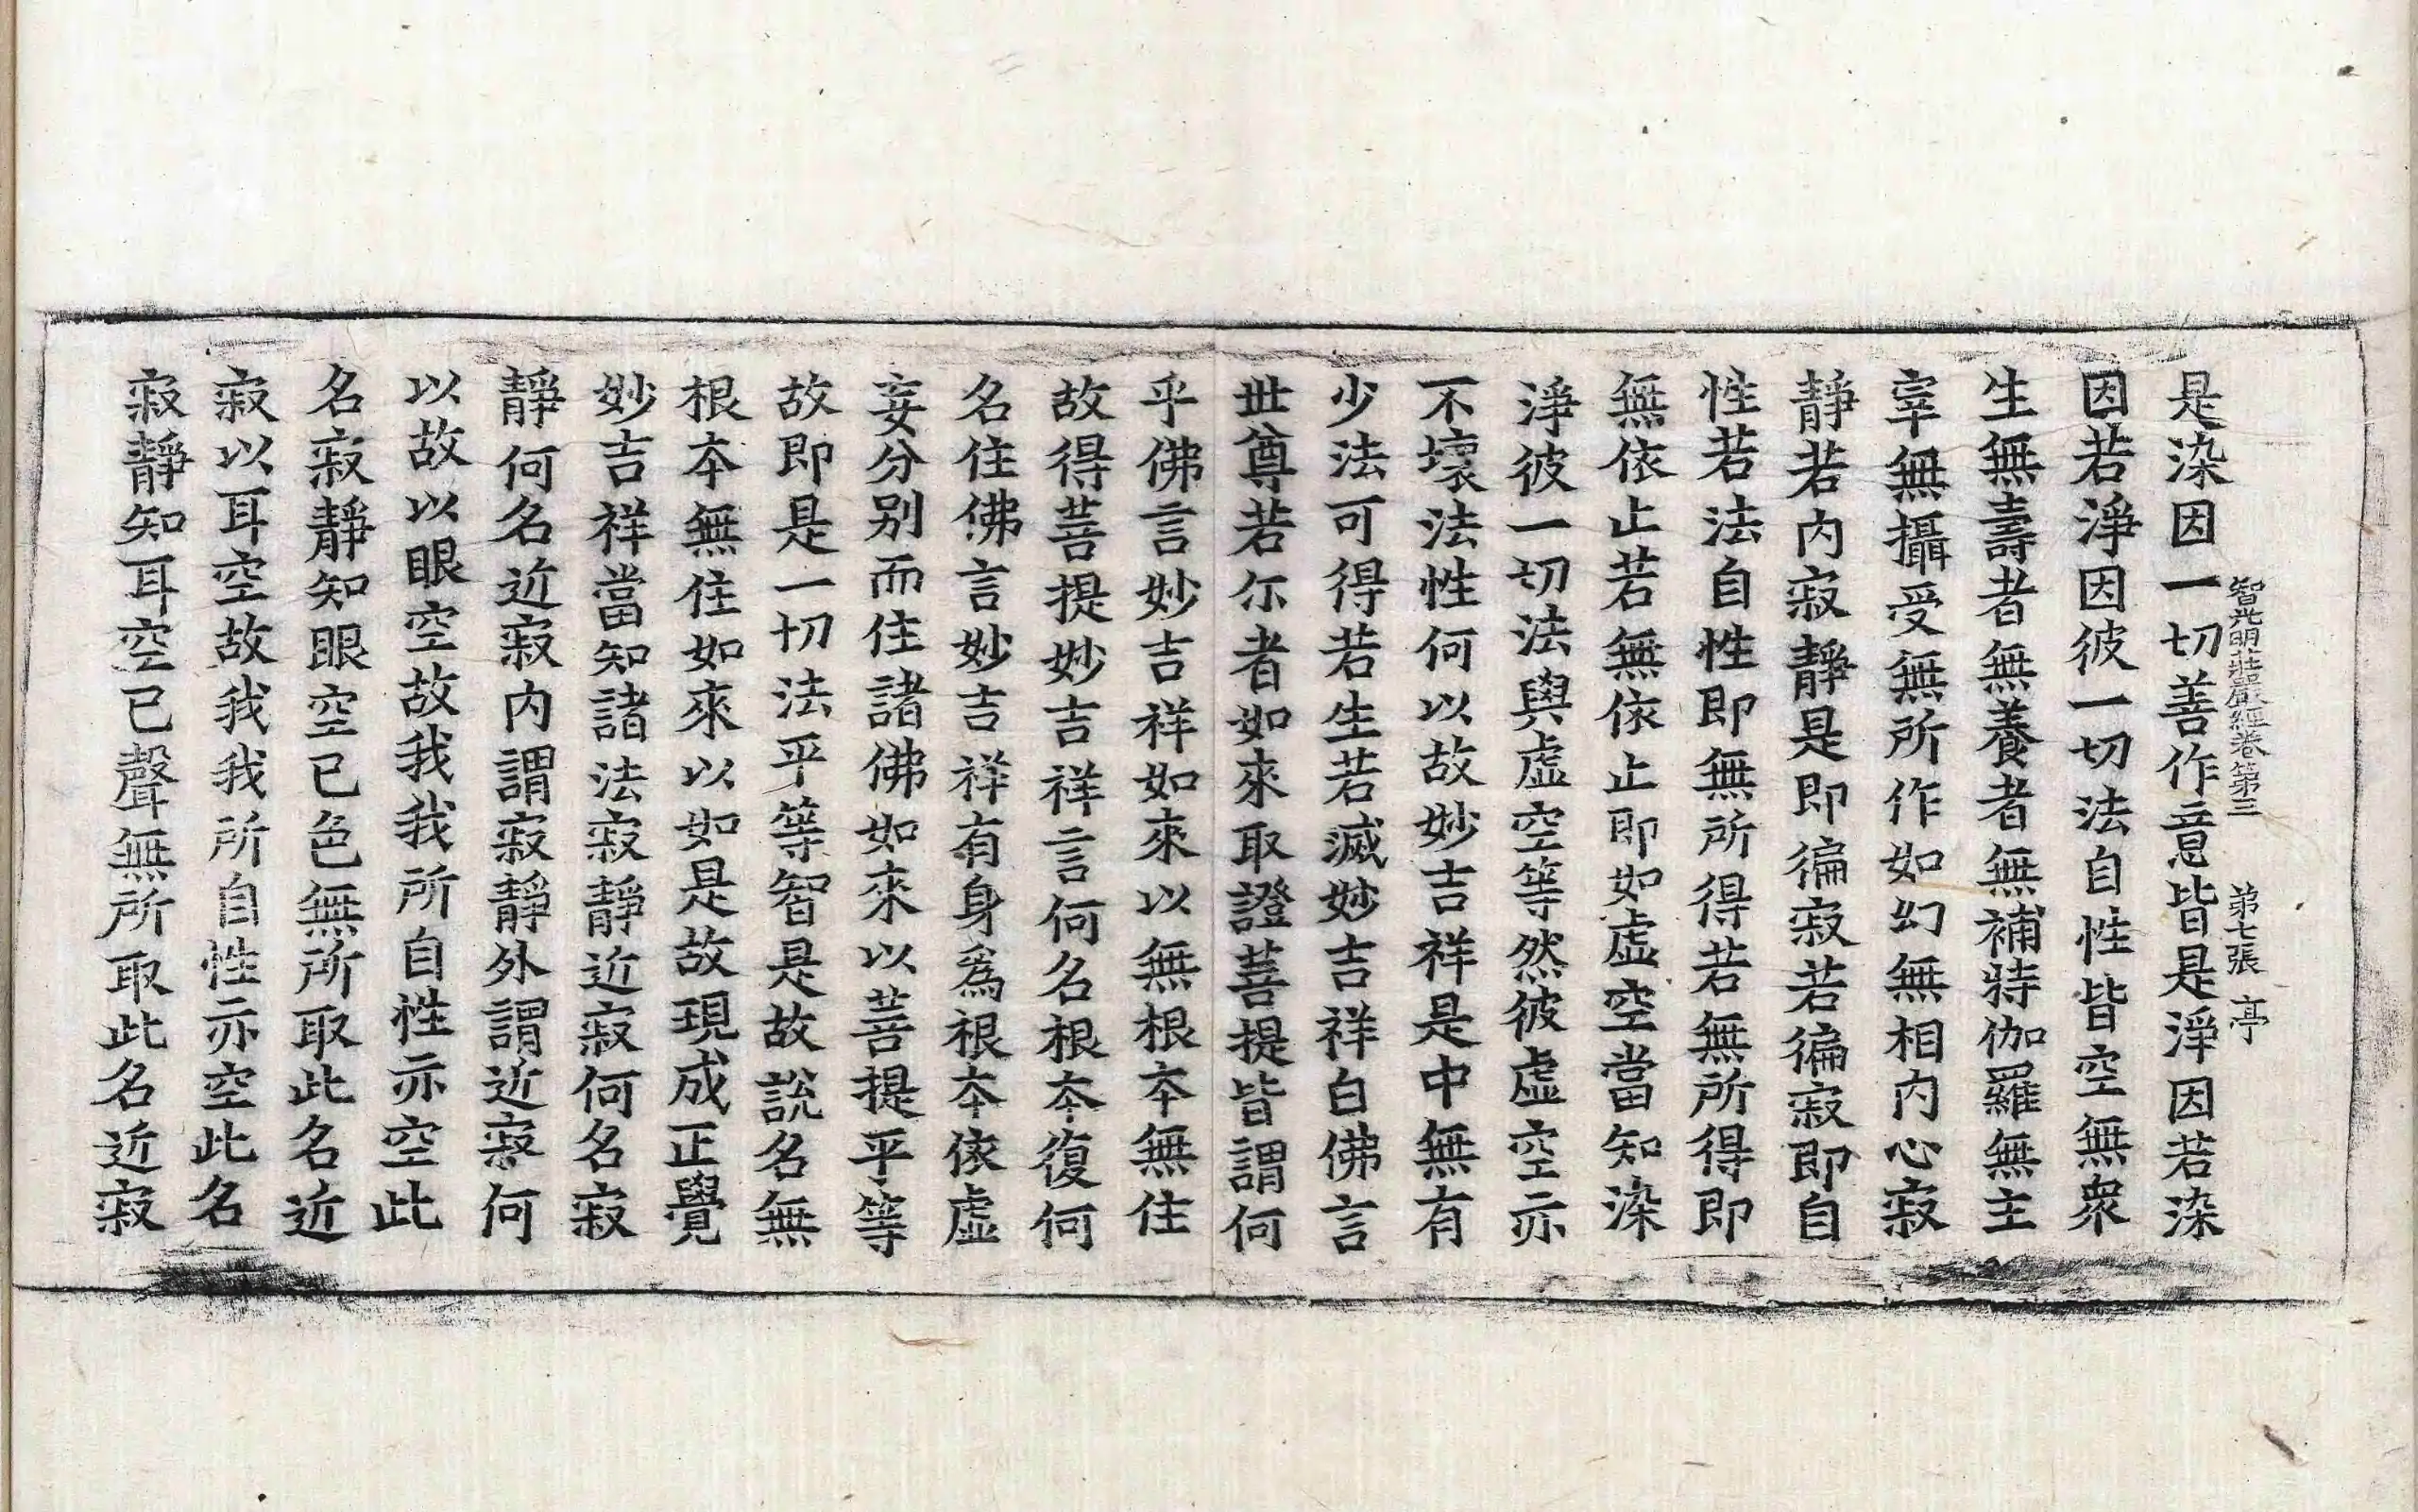 智光明莊嚴經卷第三　第七張　亭
是染因一切善作意皆是淨因若染
因若淨因彼一切法自性皆空無衆
生無壽者無養者無補特伽羅無主
宰無攝受無所作如幻無相內心寂
靜若內寂靜是即徧寂若徧寂即自
性若法自性即無所得若無所得即
無依止若無依止即如虛空當知染
淨彼一切法與虛空等然彼虛空亦
不壞法性何以故妙吉祥是中無有
少法可得若生若滅妙吉祥白佛言
世尊若尒者如來取證菩提皆謂何
乎佛言妙吉祥如來以無根本無住
故得菩提妙吉祥言何名根本復何
名住佛言妙吉祥有身爲根本依虛
妄分别而住諸佛如來以菩提平等
故即是一切法平等智是故說名無
根本無住如來以如是故現成正覺
妙吉祥當知諸法寂靜近寂何名寂
靜何名近寂內謂寂靜外謂近寂何
以故以眼空故我我所自性亦空此
名寂靜知眼空已色無所取此名近
寂以耳空故我我所自性亦空此名
寂靜知耳空已聲無所取此名近寂